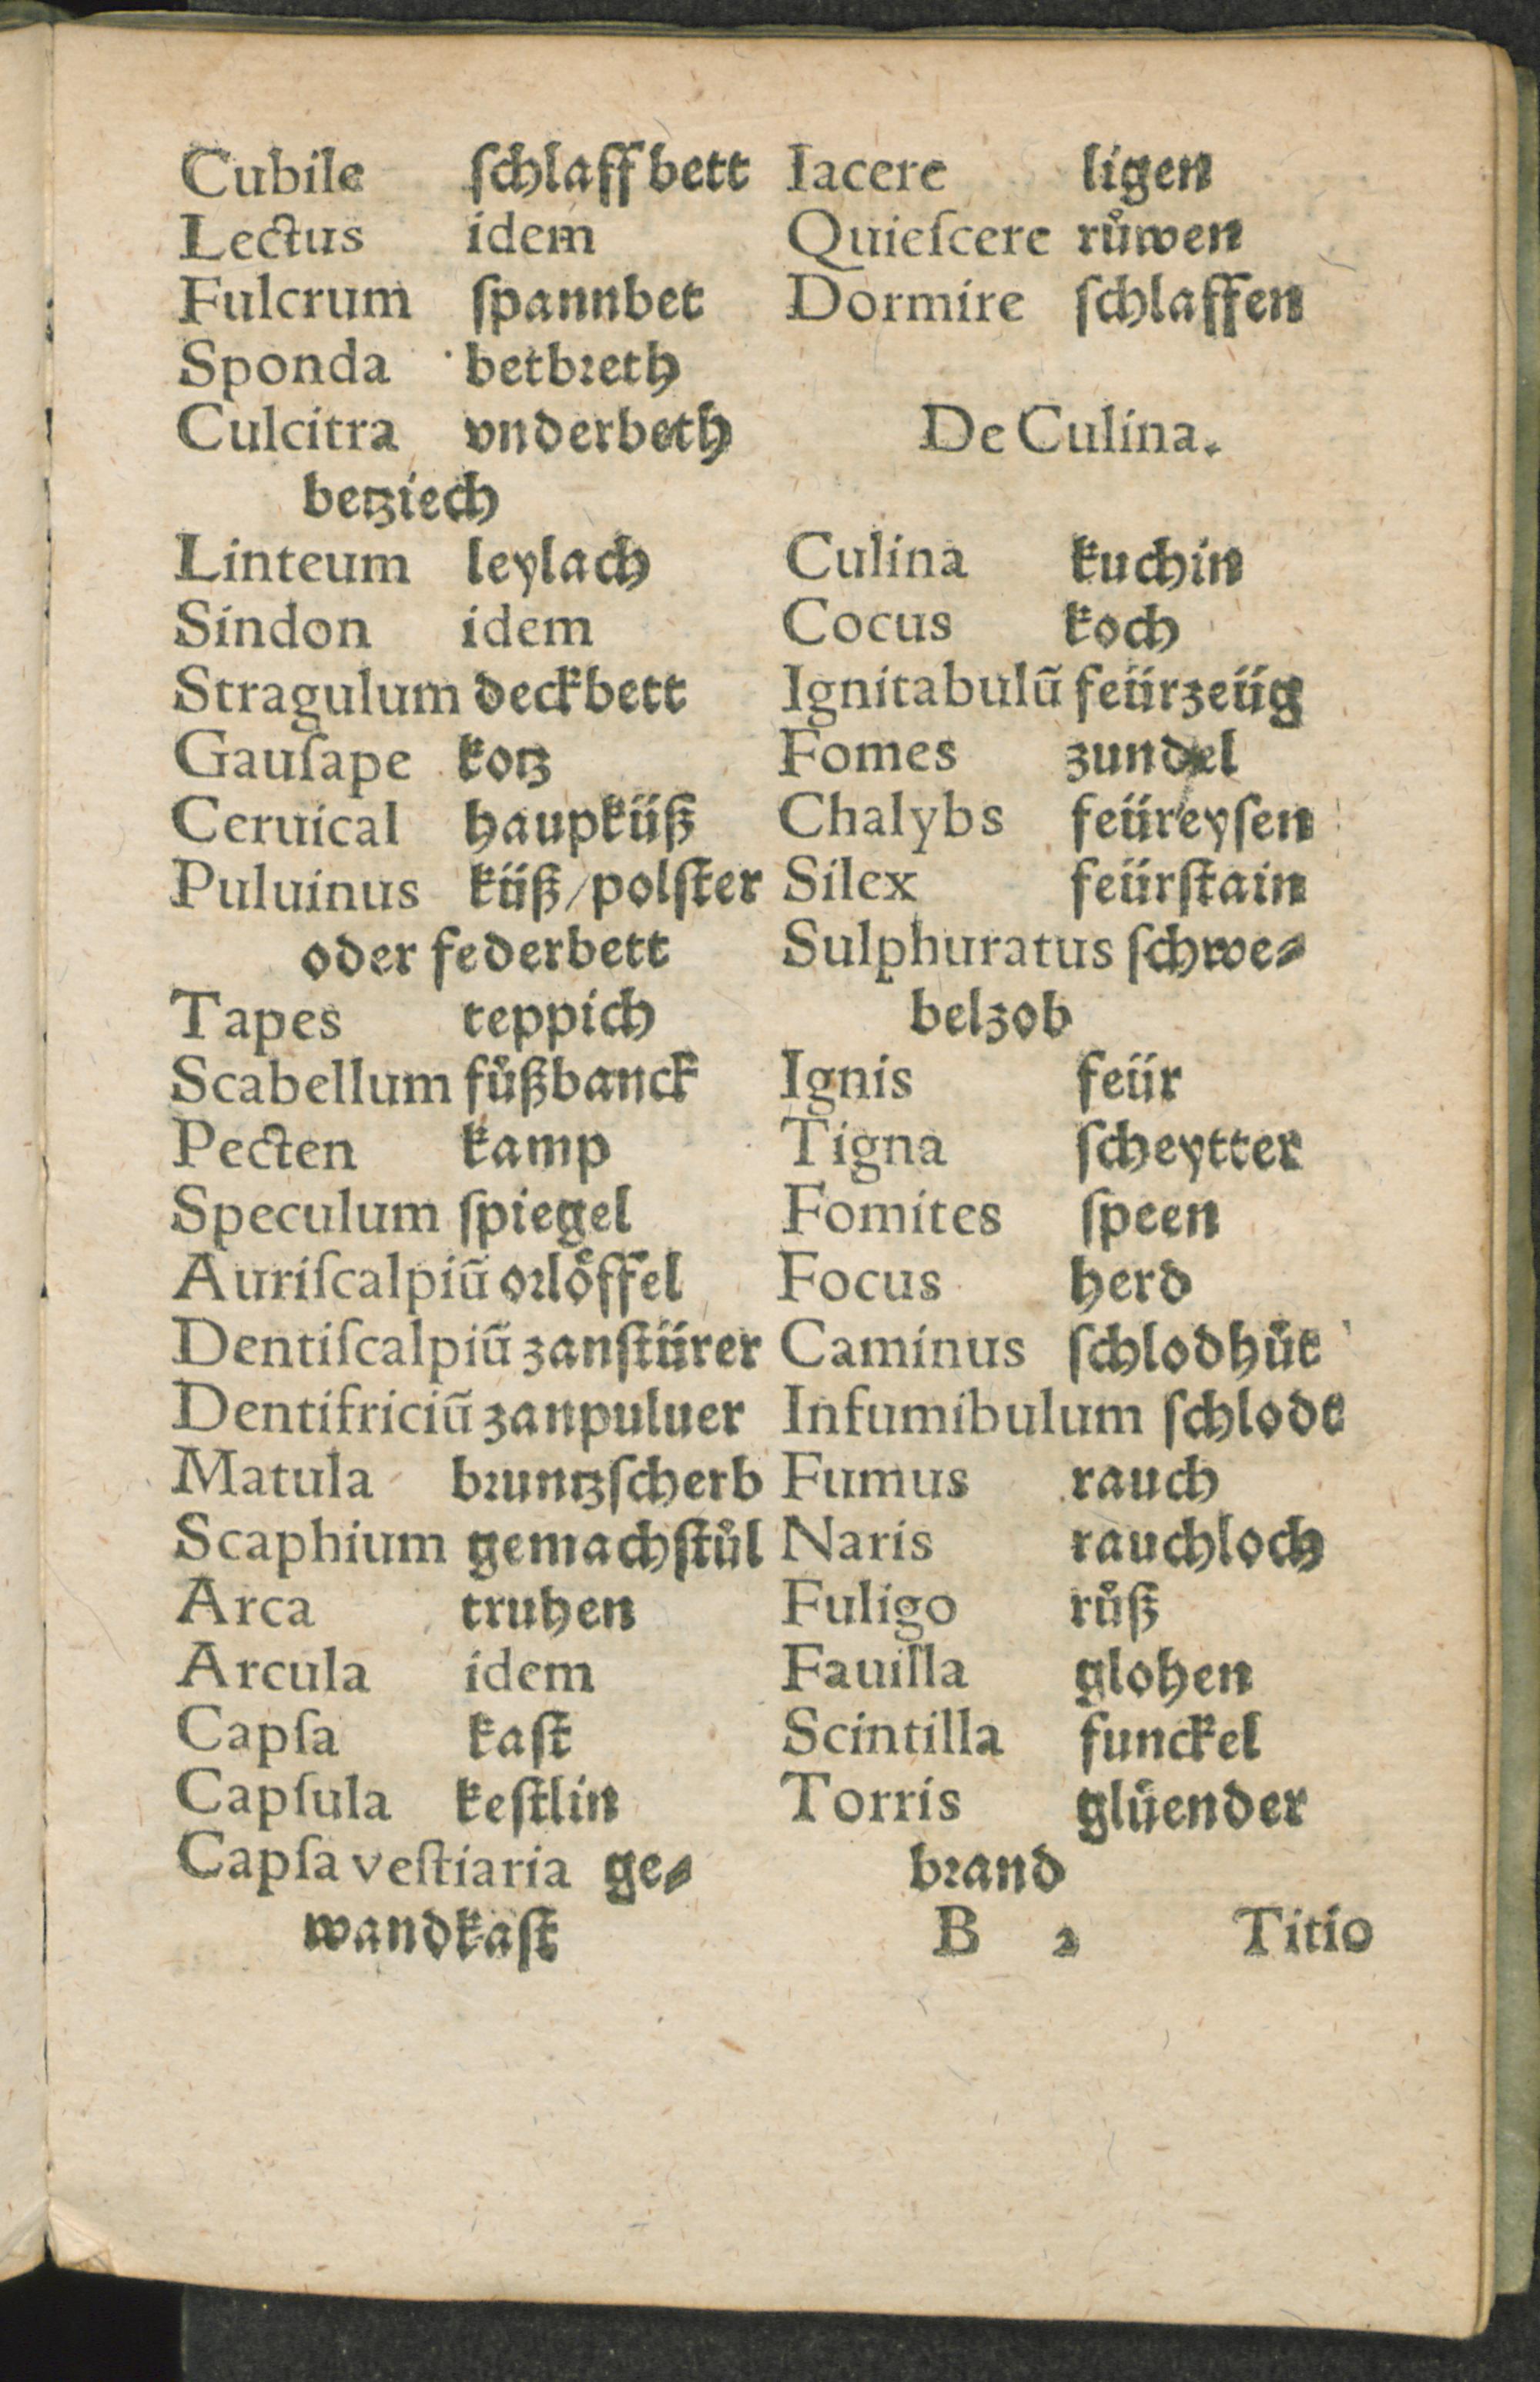 Cubile ſchlaffbett
Lectus idem
Fulcrum ſpannbet
Sponda betbꝛeth
Culcitra vnderbeth
betziech
Linteum leylach
Sindon idem
Stragulum deckbett
Gauſape kotz
Ceruical haupküß
Puluinus küß/polſter
oder federbett
Tapes teppich
Scabellum fůßbanck
Pecten kamp
Speculum ſpiegel
Auriſcalpiū oꝛlöffel
Dentiſcalpiū zanſtürer
Dentifriciū zanpuluer
Matula bꝛuntzſcherb
Scaphium gemachſtůl
Arca truhen
Arcula idem
Capſa kaſt
Capſula keſtlin
Capſa veſtiaria ge⸗
wandkaſt
Iacere ligen
Quieſcere růwen
Dormire ſchlaffen
De Culina.
Culina kuchin
Cocus koch
Ignitabulū feürzeüg
Fomes zundel
Chalybs feüreyſen
Silex feürſtain
Sulphuratus ſchwe⸗
belzob
Ignis feür
Tigna ſcheytter
Fomites ſpeen
Focus herd
Caminus ſchlodhůt
Infumibulum ſchlodt
Fumus rauch
Naris rauchloch
Fuligo růß
Fauilla glohen
Scintilla funckel
Torris glüender
bꝛand
B 2 Titio